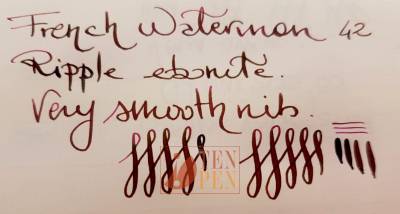 French Waterman 42
Ripple ebonite.
Very smooth nib.
FEN
PEN